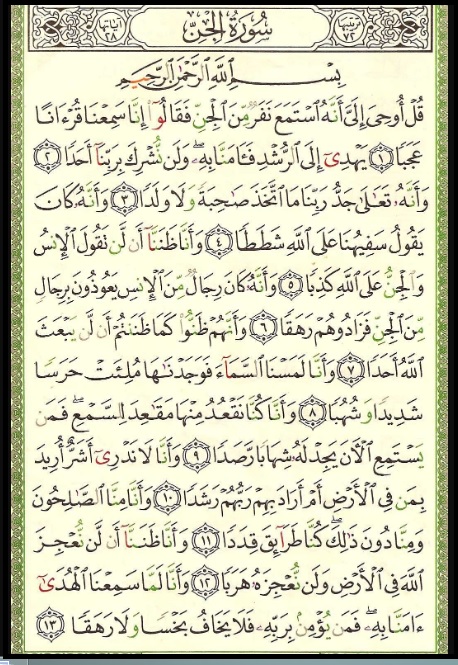 ترتيبها ٧٢ سُورَةُ الْجِنِّ آياتها ٢٨
بِسْمِ اللَّهِ الرَّحْمَٰنِ الرَّحِيمِ
قُلْ أُوحِيَ إِلَيَّ أَنَّهُ ٱسْتَمَعَ نَفَرٌ مِّنَ ٱلْجِنِّ فَقَالُوٓا۟ إِنَّا سَمِعْنَا قُرْءَانًا
عَجَبًا ﴿١﴾ يَهْدِىٓ إِلَى ٱلرُّشْدِ فَـَٔامَنَّا بِهِۦ ۖ وَلَن نُّشْرِكَ بِرَبِّنَآ أَحَدًا ﴿٢﴾
وَأَنَّهُۥ تَعَٰلَىٰ جَدُّ رَبِّنَا مَا ٱتَّخَذَ صَٰحِبَةً وَلَا وَلَدًا ﴿٣﴾ وَأَنَّهُۥ كَانَ
يَقُولُ سَفِيهُنَا عَلَى ٱللَّهِ شَطَطًا ﴿٤﴾ وَأَنَّا ظَنَنَّآ أَن لَّن تَقُولَ ٱلْإِنسُ
وَٱلْجِنُّ عَلَى ٱللَّهِ كَذِبًا ﴿٥﴾ وَأَنَّهُۥ كَانَ رِجَالٌ مِّنَ ٱلْإِنسِ يَعُوذُونَ بِرِجَالٍ
مِّنَ ٱلْجِنِّ فَزَادُوهُمْ رَهَقًا ﴿٦﴾ وَأَنَّهُمْ ظَنُّوا۟ كَمَا ظَنَنتُمْ أَن لَّن يَبْعَثَ
ٱللَّهُ أَحَدًا ﴿٧﴾ وَأَنَّا لَمَسْنَا ٱلسَّمَآءَ فَوَجَدْنَٰهَا مُلِئَتْ حَرَسًا
شَدِيدًا وَشُهُبًا ﴿٨﴾ وَأَنَّا كُنَّا نَقْعُدُ مِنْهَا مَقَٰعِدَ لِلسَّمْعِ ۖ فَمَن
يَسْتَمِعِ ٱلْـَٔانَ يَجِدْ لَهُۥ شِهَابًا رَّصَدًا ﴿٩﴾ وَأَنَّا لَا نَدْرِىٓ أَشَرٌّ أُرِيدَ
بِمَن فِى ٱلْأَرْضِ أَمْ أَرَادَ بِهِمْ رَبُّهُمْ رَشَدًا ﴿١٠﴾ وَأَنَّا مِنَّا ٱلصَّٰلِحُونَ
وَمِنَّا دُونَ ذَٰلِكَ ۖ كُنَّا طَرَآئِقَ قِدَدًا ﴿١١﴾ وَأَنَّا ظَنَنَّآ أَن لَّن نُّعْجِزَ
ٱللَّهَ فِى ٱلْأَرْضِ وَلَن نُّعْجِزَهُۥ هَرَبًا ﴿١٢﴾ وَأَنَّا لَمَّا سَمِعْنَا ٱلْهُدَىٰٓ
ءَامَنَّا بِهِۦ ۖ فَمَن يُؤْمِنۢ بِرَبِّهِۦ فَلَا يَخَافُ بَخْسًا وَلَا رَهَقًا ﴿١٣﴾